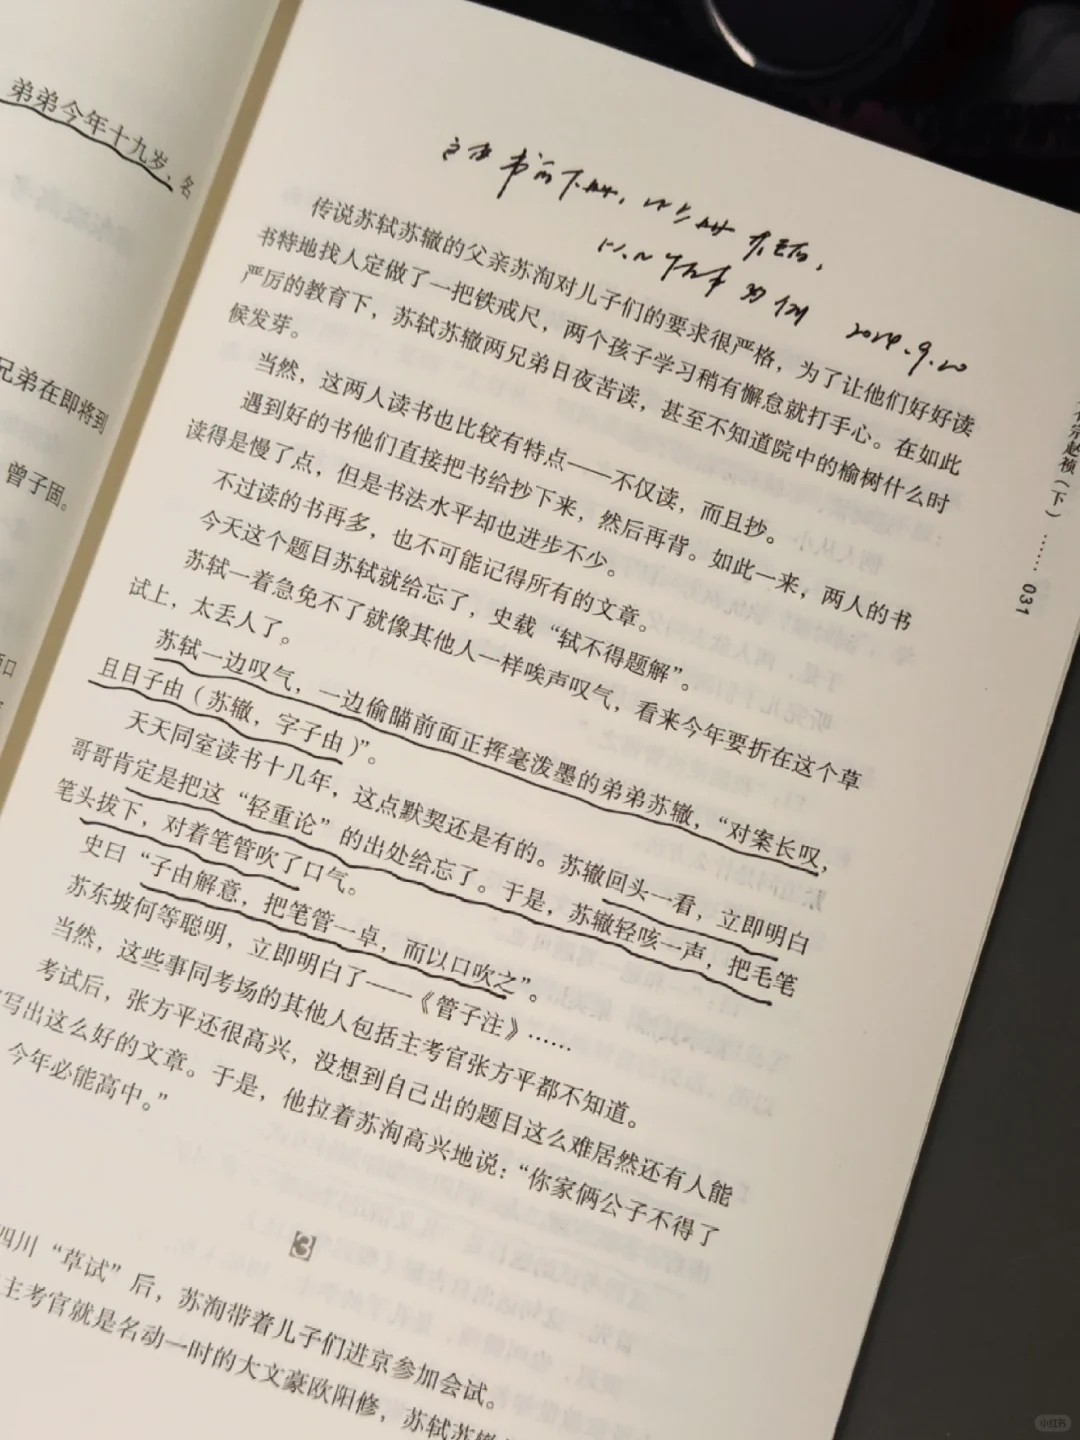 弟弟今年十九岁，名
兄弟在即将到
曾子固。
2024.9.20
传说苏轼苏辙的父亲苏洵对儿子们的要求很严格，为了让他们好好读
书特地找人定做了一把铁戒尺，两个孩子学习稍有懈怠就打手心。在如此
严厉的教育下，苏轼苏辙两兄弟日夜苦读，甚至不知道院中的榆树什么时
候发芽。
当然，这两人读书也比较有特点——不仅读，而且抄。
遇到好的书他们直接把书给抄下来，然后再背。如此一来，两人的书
读得是慢了点，但是书法水平却也进步不少。
不过读的书再多，也不可能记得所有的文章。
今天这个题目苏轼就给忘了，史载“轼不得题解”。
苏轼一着急免不了就像其他人一样唉声叹气，看来今年要折在这个草
试上，太丢人了。
苏轼一边叹气，一边偷瞄前面正挥毫泼墨的弟弟苏辙，“对案长叹，
且目子由（苏辙，字子由）”。
天天同室读书十几年，这点默契还是有的。苏辙回头一看，立即明白
哥哥肯定是把这“轻重论”的出处给忘了。于是，苏辙轻咳一声，把毛笔
笔头拔下，对着笔管吹了口气。
史曰“子由解意，把笔管一卓，而以口吹之”。
苏东坡何等聪明，立即明白了——《管子注》……
当然，这些事同考场的其他人包括主考官张方平都不知道。
考试后，张方平还很高兴，没想到自己出的题目这么难居然还有人能
写出这么好的文章。于是，他拉着苏洵高兴地说：“你家俩公子不得了
今年必能高中。”
3
四川“草试”后，苏洵带着儿子们进京参加会试。
主考官就是名动一时的大文豪欧阳修，苏轼苏
宗赵祯（下）…… 031
小红书